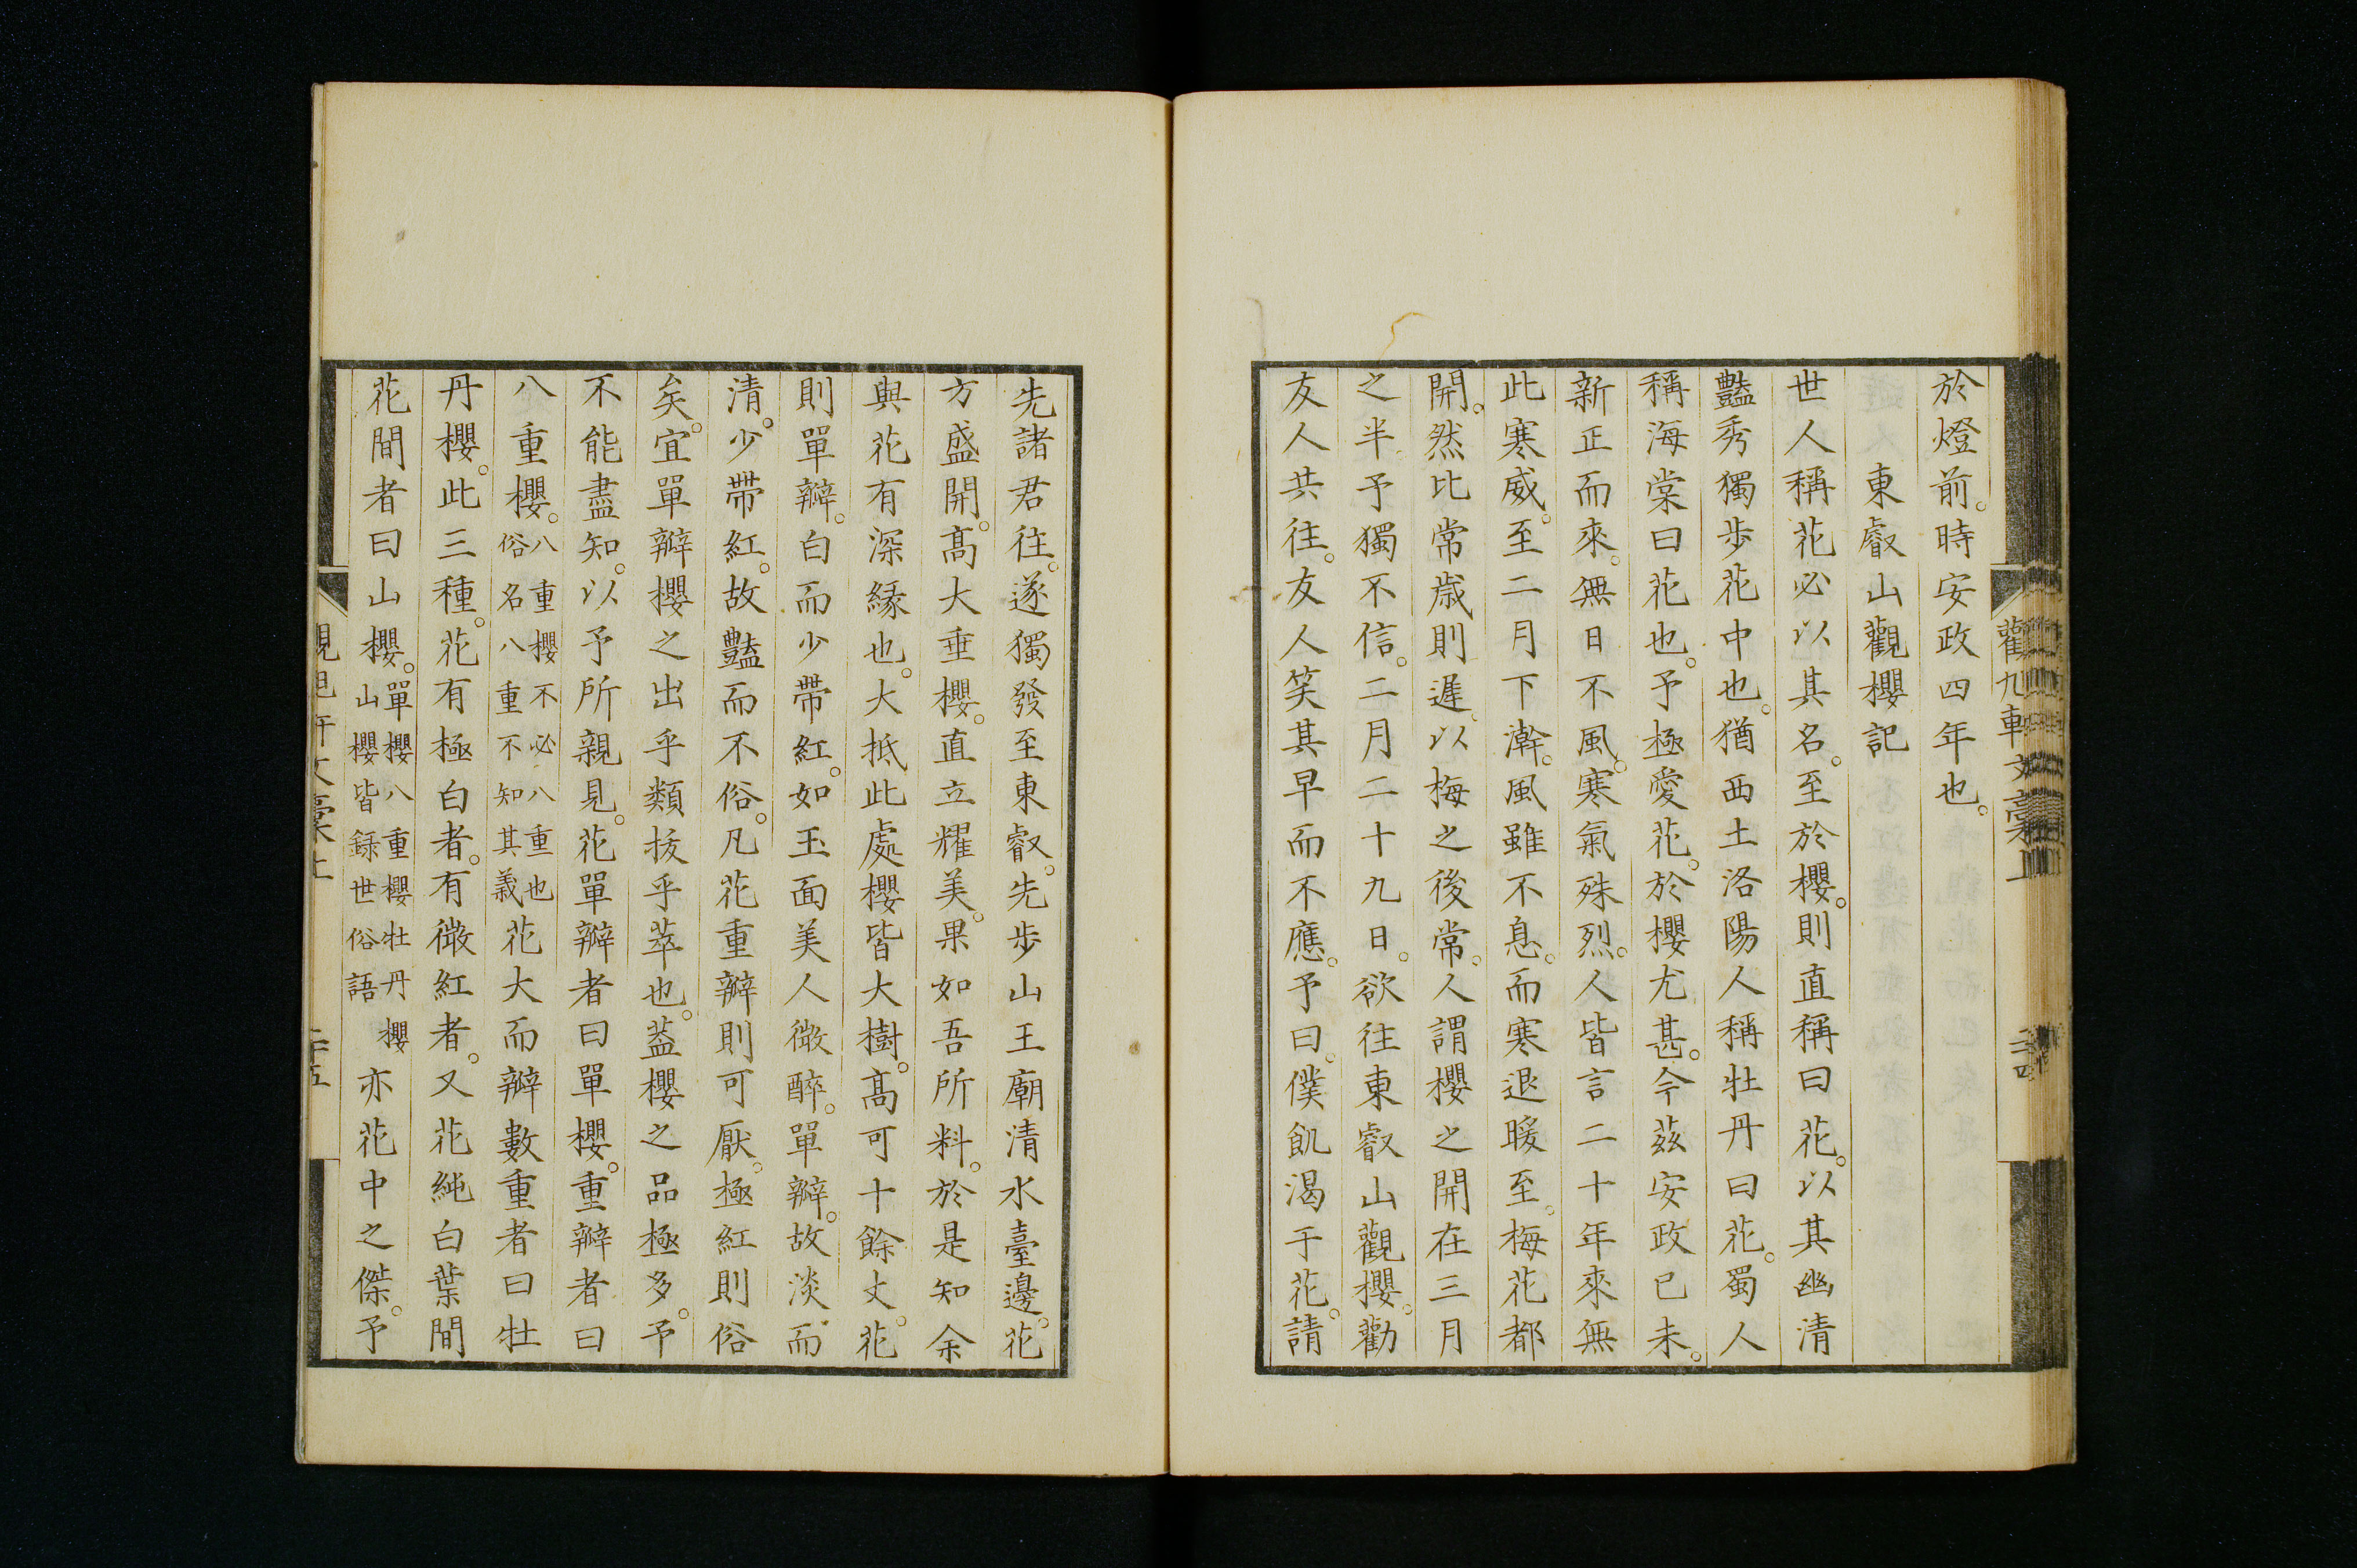 於燈前。時安政四年也。
東睿山觀櫻記
世人稱花必以其名。至於櫻。則直稱曰花。以其幽清
豔秀獨步花中也。猶西土洛陽人稱牡丹曰花。蜀人
稱海棠曰花也。予極愛花。於櫻尤甚。今茲安政已未。
新正而來。無日不風。寒氣殊烈。人皆言二十年來無
此寒威。至二月下澣。風雖不息。而寒退暖至。梅花都
開。然比常歲則遲。以梅之後常。人謂櫻之開在三月
之半。予獨不信。二月二十九日。欲往東睿山觀櫻。勸
友人共往。友人笑其早而不應。予曰。僕飢渴于花。請
先諸君往。遂獨發至東睿。先步山王廟清水臺邊。花
方盛開。高大垂櫻。直立耀美。果如吾所料。於是知余
與花有深緣也。大抵此處櫻皆大樹。高可十餘丈。花
則單瓣。白而少帶紅。如玉面美人微醉。單瓣。故淡而
清。少帶紅。故豔而不俗。凡花重瓣則可厭。極紅則俗
矣。宜單瓣櫻之出乎類拔乎萃也。蓋櫻之品極多。予
不能盡知。以予所親見。花單瓣者曰單櫻。重瓣者曰
八重櫻。八重櫻不必八重也俗名八重不知其義花大而瓣數重者曰牡
丹櫻。此三種。花有極白者。有微紅者。又花純白葉間
花間者曰山櫻。單櫻八重櫻牡丹櫻山櫻皆錄世俗語亦花中之傑。予